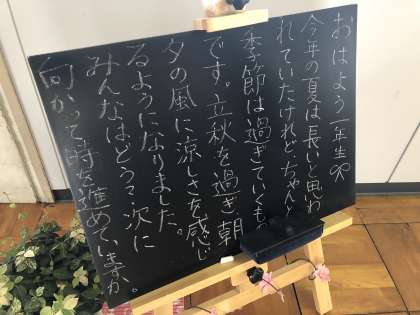 おはよう一年生
今年の夏は長いと思わ
れていたけれど、ちゃんと
季節は過ぎていくもの
です。立秋を過ぎ朝
夕の風に涼しさを感じ
るようになりました。
みんなはどう？次に
向かって時を進めていますか。